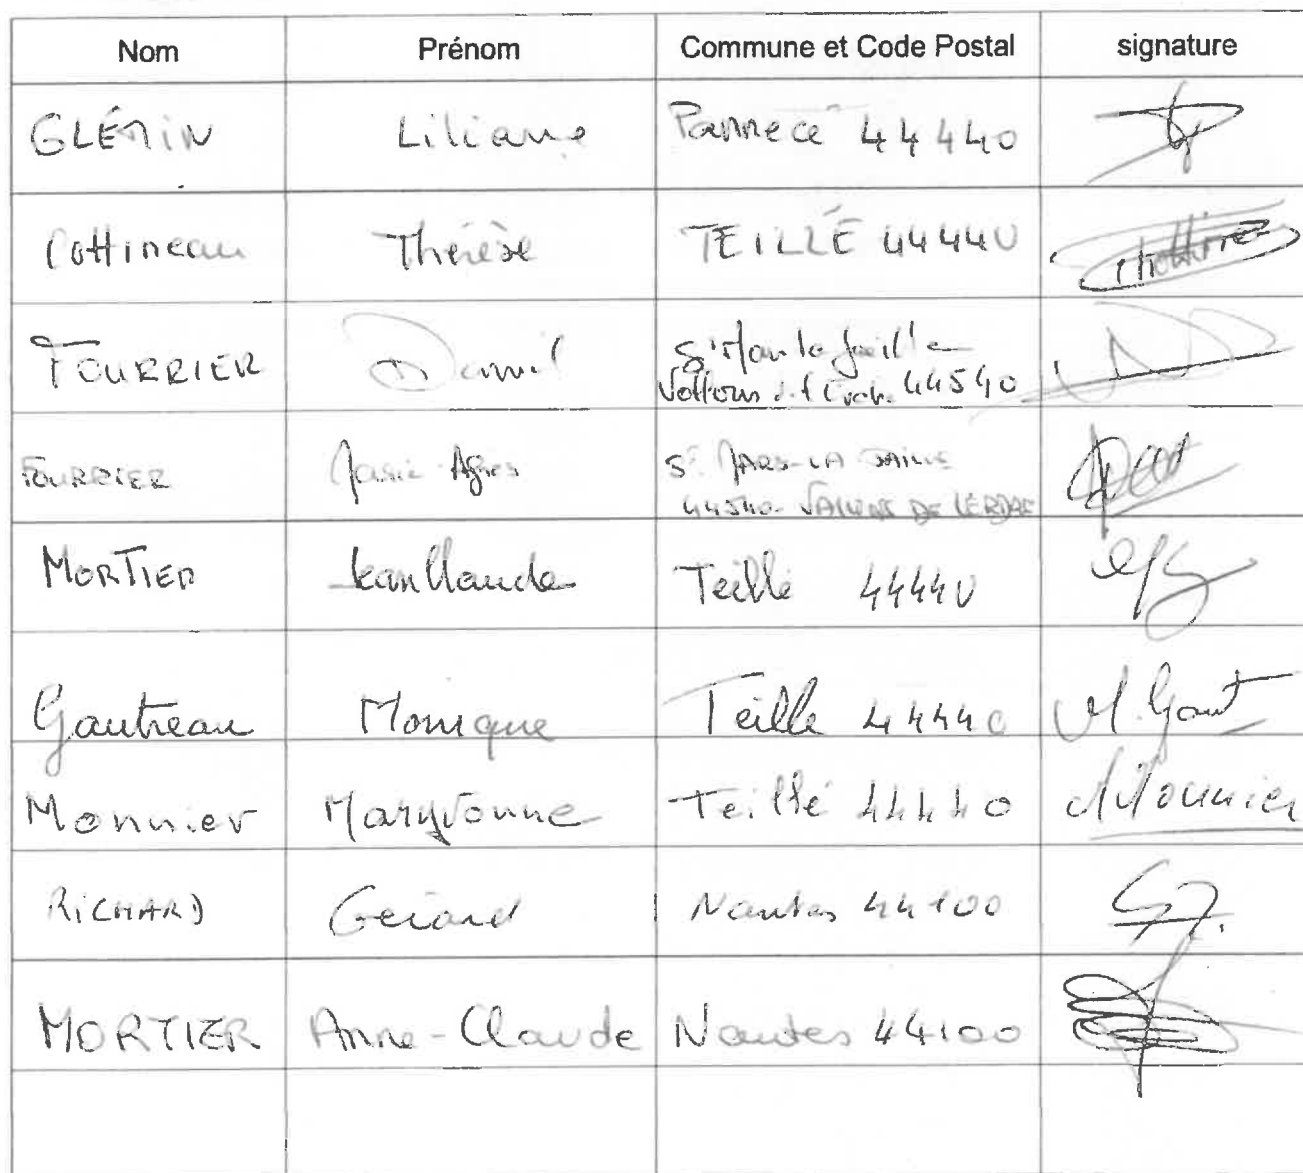 Nom Prénom Commune et Code Postal signature
GLÉMIN Liliane Pannecé 44440
Cottineau Thérèse TEILLÉ 44440
FOURRIER Daniel St Mars la Jaille
44540
FOURRIER Marie-Agnès St MARS-LA JAILLE
44540 VALLONS DE L'ERDRE
MORTIER Jean Claude Teillé 44440
Gautreau Monique Teillé 44440 M. Gaut
Monnier Maryvonne Teillé 44440 M Monnier
RICHARD Gérard Nantes 44100
MORTIER Anne-Claude Nantes 44100